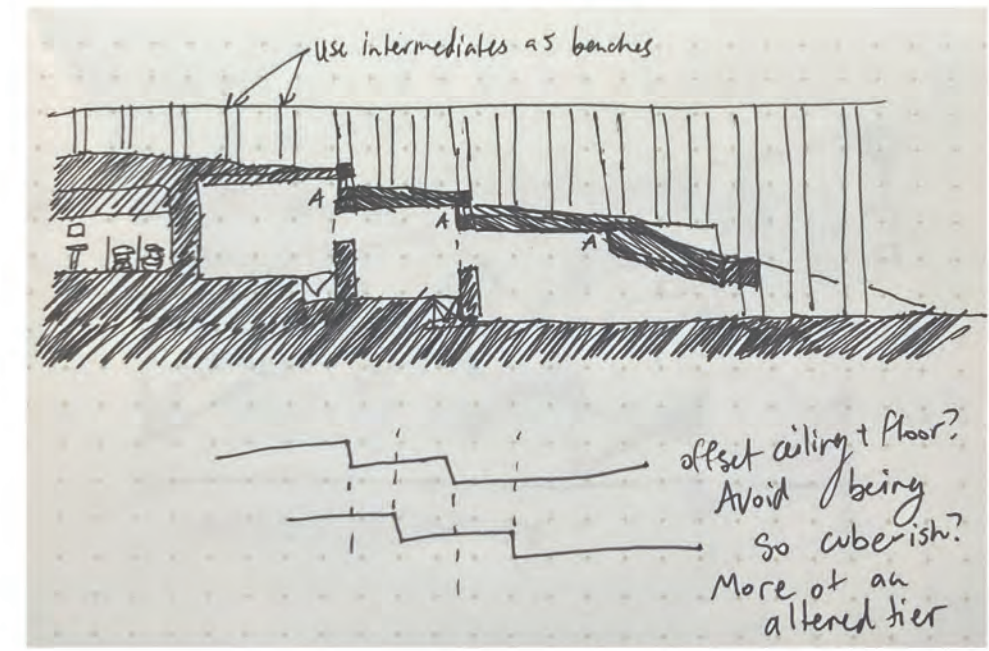 use intermediates as benches
A
A
A
offset ceiling + floor?
Avoid being
so cube-ish?
More of an
altered tier